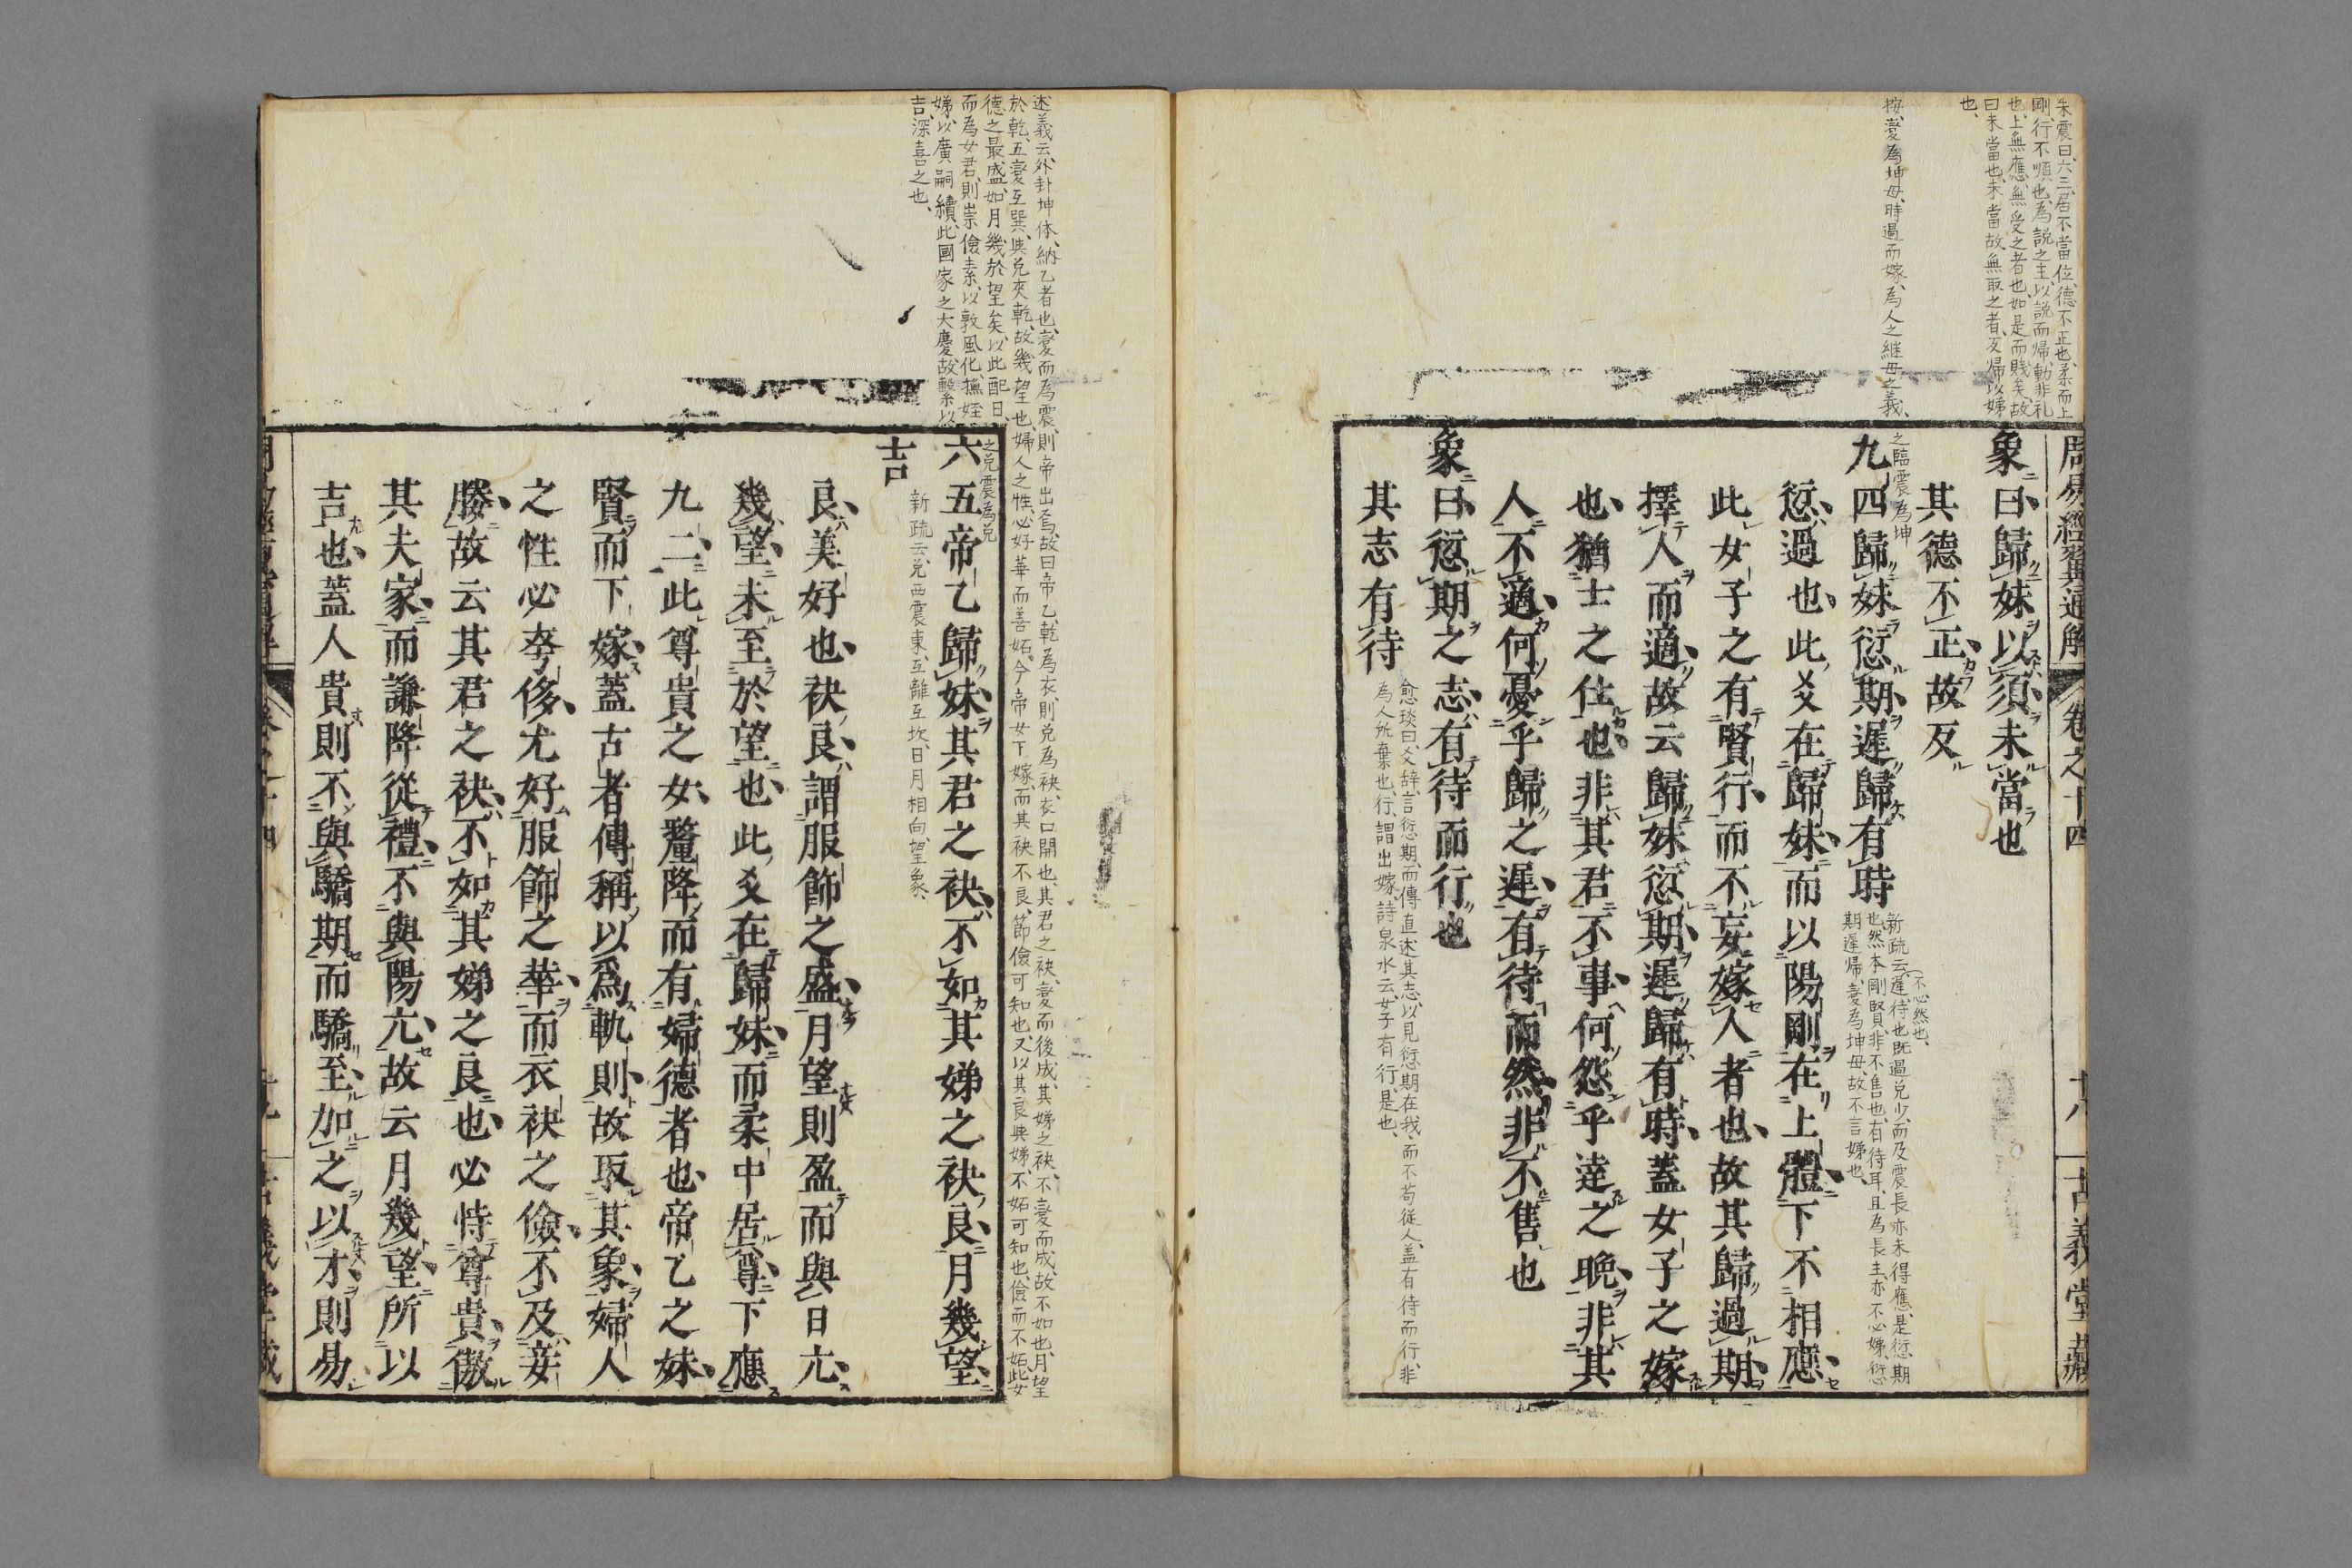 朱震曰、六三、居不當位、德不正也、柔而上
剛、行不順也、為説之主、以説而帰、動非礼
也、上無應、無受之者也、如是而賎矣、故
曰未當也、未當故、無取之者、反帰以娣
也、
按、變為坤母、時過而嫁、為人之継母之義、
周易經翼通解
卷之十四
十八
古義堂藏
象曰歸妹以須未當也
其德不正故反
之臨震為坤
九四歸妹愆期遲歸有時
(不必然也、
新疏云、遲、待也、既過兑少、而及震長、亦未得應、是愆期
也、然本剛賢、非不售也、有待耳、且為長主、亦不必娣、愆
期遲帰、變為坤母、故不言娣也、
愆過也此爻在歸妹而以陽剛在上體下不相應
此女子之有賢行而不妄嫁人者也故其歸過期
擇人而適故云歸妹愆期遲歸有時蓋女子之嫁
也猶士之仕也非其君不事何怨乎逹之晩非其
人不適何憂乎歸之遲有待而然非不售也
象曰愆期之志有待而行也
兪琰曰、爻辞、言愆期、而傳直述其志、以見愆期在我、而不苟従人、盖有待而行、非
為人所棄也、行、謂出嫁、詩泉水云、女子有行、是也、
其志有待
述義云、外卦坤体、納乙者也、變而為震、則帝出焉、故曰帝乙、乾為衣、則兑為袂、衣口開也、其君之袂、變而後成、其娣之袂、不變而成、故不如也、月望
於乾、五變互巽、與兑夾乾、故幾望也、婦人之性、必好華而善妬、今帝女下嫁、而其袂不良、節儉可知也、又以其良與娣、不妬可知也、儉而不妬、此女
德之最盛、如月幾於望矣、以此配日、
而為女君、則崇儉素、以敦風化、撫姪
娣、以廣嗣續、此國家之大慶、故繫以
吉、深喜之也、
之兑震為兑
六五帝乙歸妹其君之袂不如其娣之袂良月幾望
吉
新疏云、兑西震東、互離互坎、日月相向、望象、
良美好也袂良謂服飾之盛月望則盈而與日亢
幾望未至於望也此爻在歸妹而柔中居尊下應
九二此尊貴之女釐降而有婦德者也帝乙之妹
賢而下嫁蓋古者傳稱以爲軌則故取其象婦人
之性必夸侈尤好服飾之華而衣袂之儉不及妾
媵故云其君之袂不如其娣之良也必恃尊貴傲
其夫家而謙降從禮不與陽亢故云月幾望所以
吉也蓋人貴則不與驕期而驕至加之以才則易